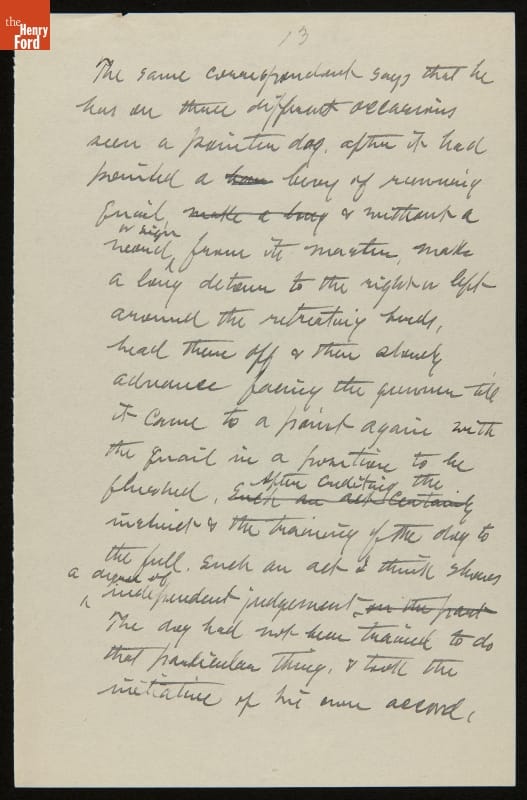 the
Henry
Ford
13
The same correspondent says that he
has on three different occasions
seen a pointer dog, after it had
pointed a bevy of running
quail, make a long & without a
word or sign, from its master, make
a long detour to the right or left
around the retreating birds,
head them off & then slowly
advance facing the gunner till
it came to a point again with
the quail in a position to be
flushed. Such an act certainly
After crediting the
instinct & the training of the dog to
the full. Such an act I think shows
a degree of
independent judgement on the part
The dog had not been trained to do
that particular thing, & took the
initiative of his own accord,